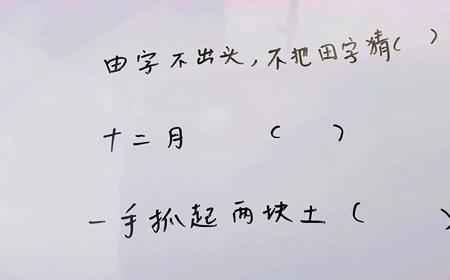 由字不出头,不把田字猜( )
十二月 ( )
一手抓起两块土( )